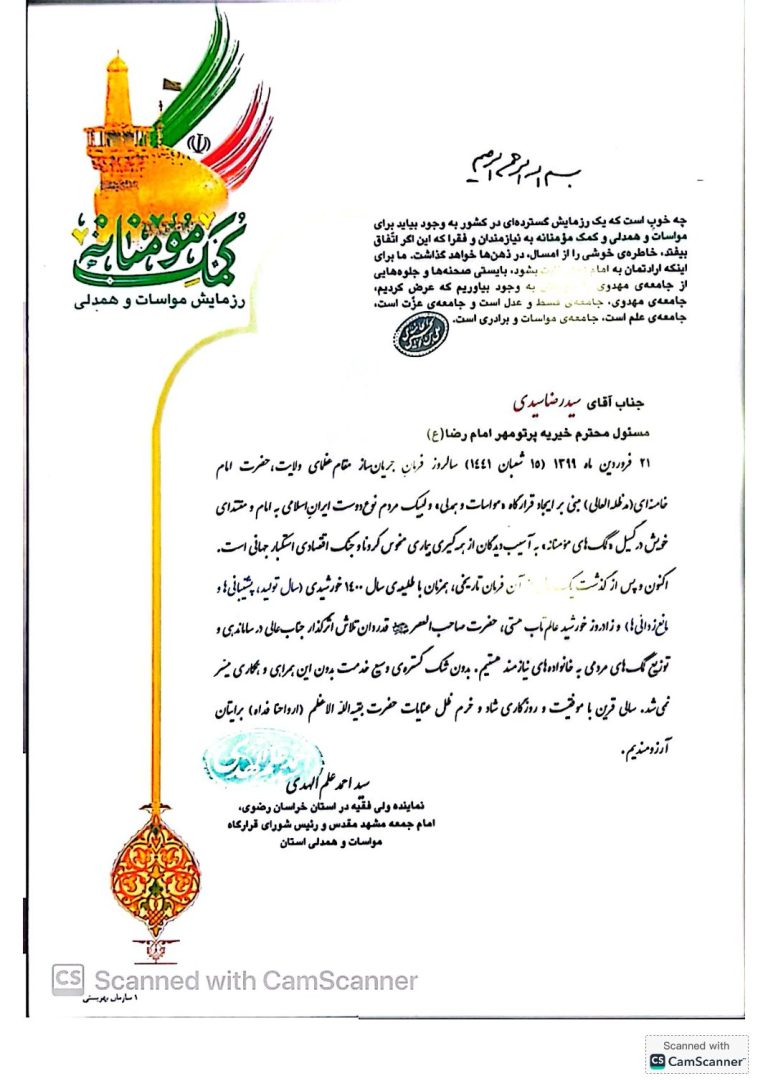 بسم الله الرحمن الرحیم
کمک مؤمنانه
رزمایش مواسات و همدلی
چه خوب است که یک رزمایش گسترده‌ای در کشور به وجود بیاید برای
مواسات و همدلی و کمک مؤمنانه به نیازمندان و فقرا که این اگر اتّفاق
بیفتد، خاطره‌ی خوشی را از امسال، در ذهن‌ها خواهد گذاشت. ما برای
اینکه ارادتمان به امام بشود، بایستی صحنه‌ها و جلوه‌هایی
از جامعه‌ی مهدوی به وجود بیاوریم که عرض کردیم،
جامعه‌ی مهدوی، جامعه‌ی قسط و عدل است و جامعه‌ی عزّت است،
جامعه‌ی علم است، جامعه‌ی مواسات و برادری است.
جناب آقای سیدرضا سیدی
مسئول محترم خیریه پرتومهر امام رضا(ع)
۲۱ فروردین ماه ۱۳۹۹ (۱۵ شعبان ۱۴۴۱) سالروز فرمان جریان‌ساز مقام عظمای ولایت، حضرت امام
خامنه‌ای(مدظله‌العالی) مبنی بر ایجاد قرارگاه «مواسات و همدلی» و لبیک مردم نوع‌دوست ایران اسلامی به امام و مقتدای
خویش در گسیل «کمک‌های مؤمنانه» به آسیب‌دیدگان از همه‌گیری بیماری منحوس کرونا و جنگ اقتصادی استکبار جهانی است.
اکنون و پس از گذشت یک از آن فرمان تاریخی، همزمان با طلیعه‌ی سال ۱۴۰۰ خورشیدی (سال تولید، پشتیبانی‌ها و
مانع‌زدائی‌ها) و زادروز خورشید عالم‌تاب هستی، حضرت صاحب‌العصر قدردان تلاش اثرگذار جناب‌عالی در ساماندهی و
توزیع کمک‌های مردمی به خانواده‌های نیازمند هستیم. بدون شک گستره‌ی وسیع خدمت بدون این همراهی و همکاری میسر
نمی‌شد. سالی قرین با موفقیت و روزگاری شاد و خرم ظل عنایات حضرت بقیه‌الله الاعظم (ارواحنا فداه) برایتان
آرزومندیم.
سید احمد علم‌الهدی
نماینده ولی فقیه در استان خراسان رضوی،
امام جمعه مشهد مقدس و رئیس شورای قرارگاه
مواسات و همدلی استان
CS Scanned with CamScanner
۱ سازمان بهزیستی
Scanned with
CS CamScanner